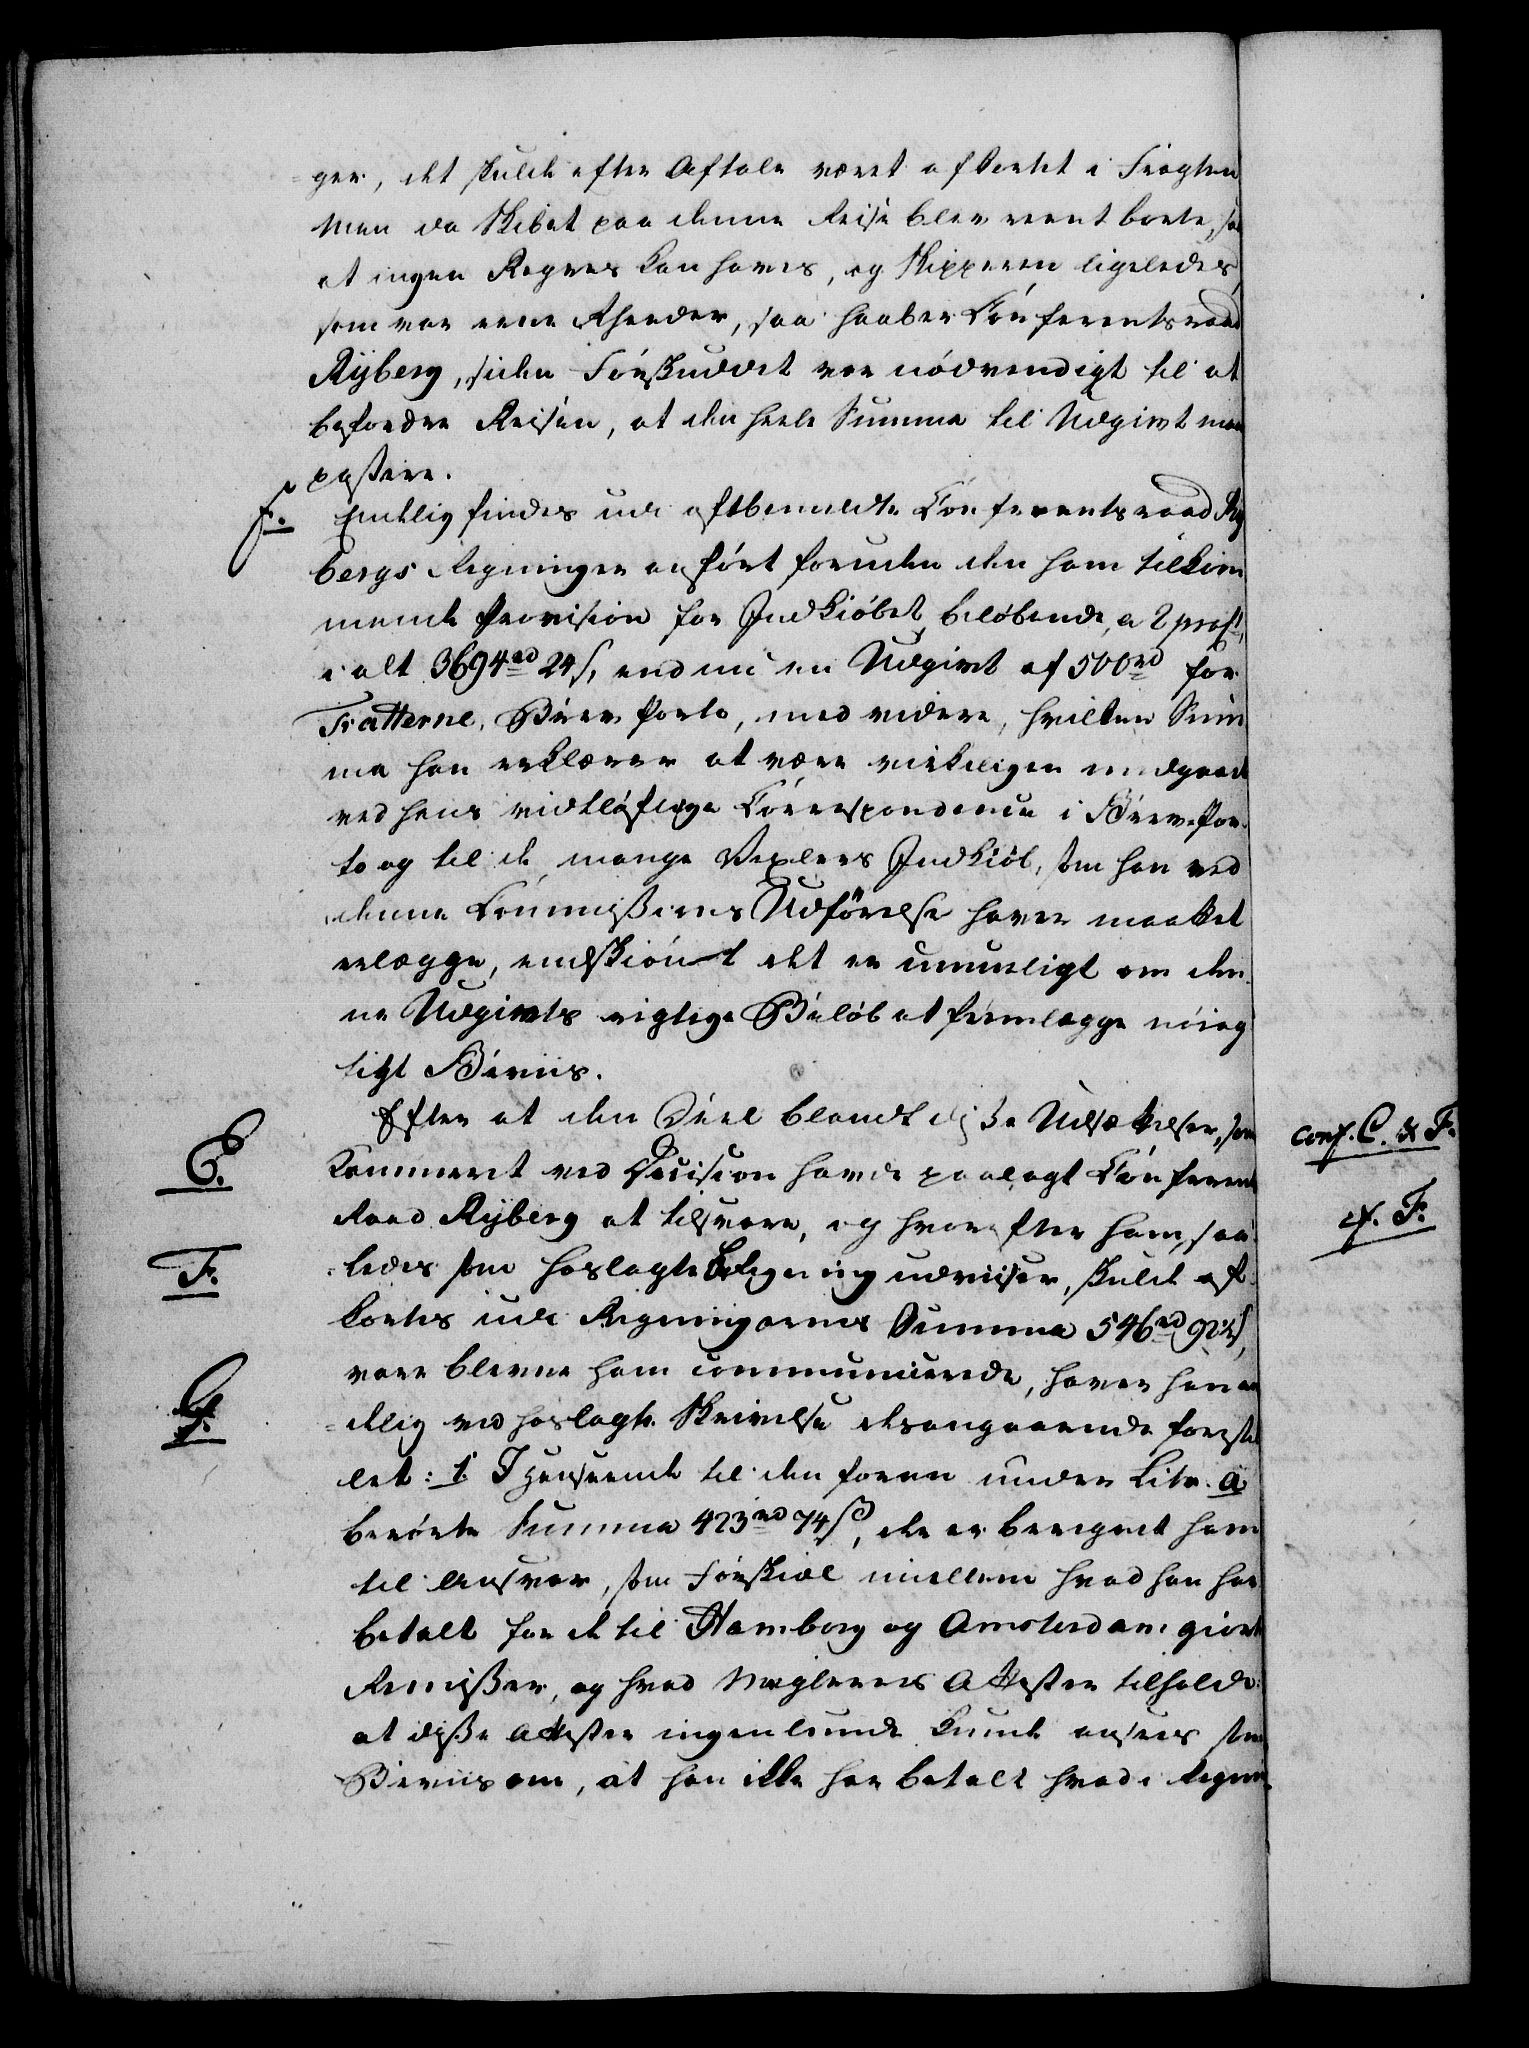 ger, det skulde efter Aftale været afkortet i Fragten
Men da Skibet paa denne Reise blev reent borte, saa
at ingen Regres kan haves, og Skipperen ligeledes,
som var eene Rheeder, saa haaber Conferentsraad
Ryberg, siden Forskuddet var nødvendigt til at
befordre Reisen, at den heele Summa til Udgivt maa
passere.
f. Endelig findes udi oftbemeldte Conferentsraad Ry
bergs Regninger anført foruden den ham tilkom
mende Provision for Indkiøbet, beløbende, a 2 proct,
i alt 3694 rd 24 s, endnu en Udgivt af 500 rd for
Tratterne, Brev Porto, med videre, hvilken Sum
ma han erklærer at være virkeligen medgaaet
ved hans vidtløftige Correspondence i Brev-Por
to og til de mange Vexlers Indkiøb, som han ved
denne Commissions Udførelse haver maattet
erlægge, endskiønt det er umueligt om den
ne Udgivts rigtige Beløb at fremlægge nøiag
tigt Beviis.
Efter at den Deel blandt disse Udsættelser, som
Kammeret ved Decision havde paalagt Conferents
Raad Ryberg at tilsvare, og hvorefter ham, saa
E.
F.
ledes som hoslagte Beregning udviiser, skulde af
kortes udi Regningernes Summa 546 rd 92 s,
vare blevne ham communicerede, haver han en
G.
delig ved hoslagte Skrivelse desangaaende forestil
let: 1. I Henseende til den foran under Litr. a
berørte Summa 423 rd 74 s, der er beregnet ham
til Ansvar, som Forskiel imellem hvad han har
betalt for de til Hamborg og Amsterdam giorte
Remisser, og hvad Mæglerens Attester tilholder
at disse Attester ingenlunde kunde ansees som
Beviis om, at han ikke har betalt hvad i Regnin
conf. C. & F.
cf. F.